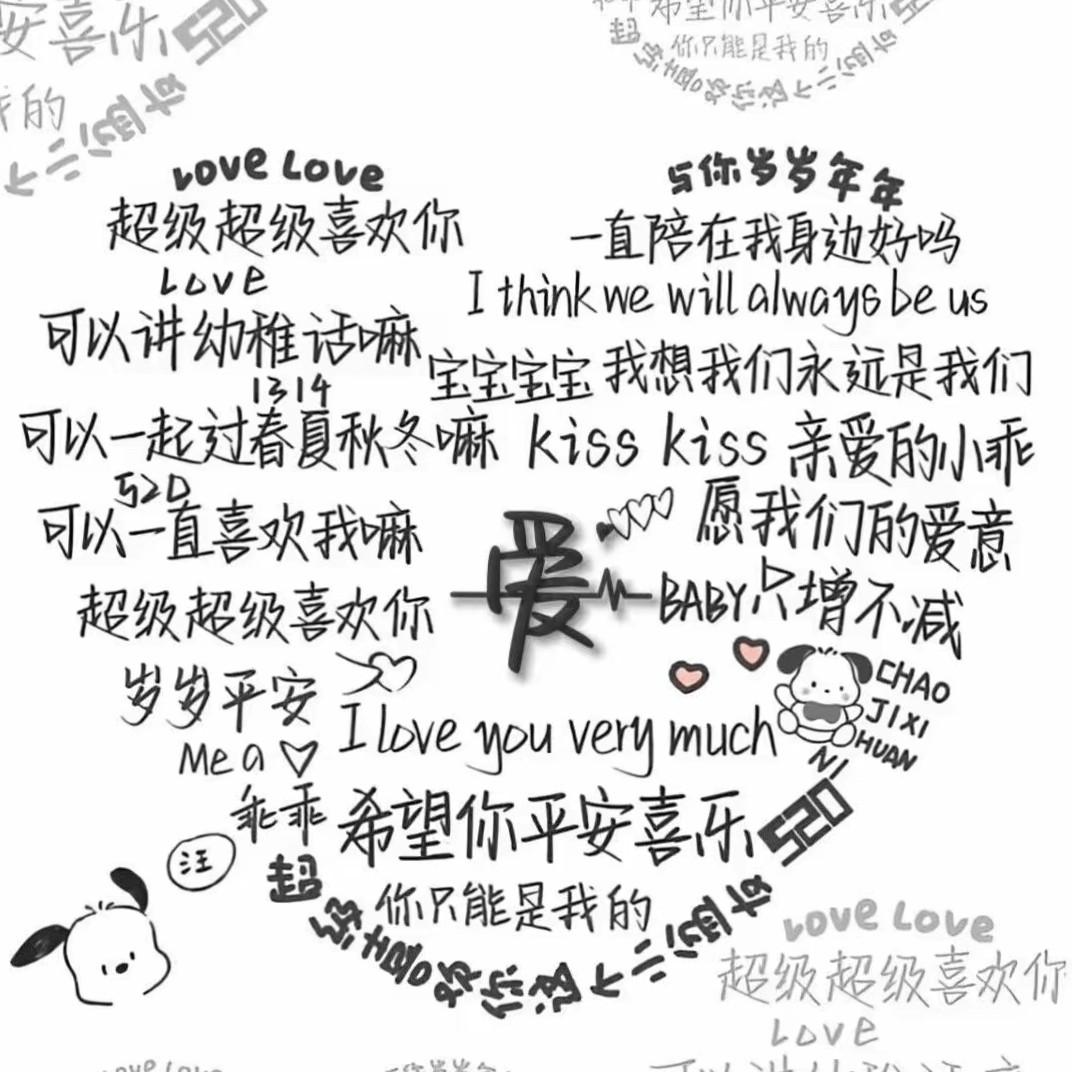 安喜乐 520
我的
个二创的成
希望你平安喜乐 520
你只能是我的
LOVE LOVE
超级超级喜欢你
LOVE
可以讲幼稚话嘛
1314
可以一起过春夏秋冬嘛
520
可以一直喜欢我嘛
超级超级喜欢你
岁岁平安
Me a
乖乖
与你岁岁年年
一直陪在我身边好吗
I think we will always be us
宝宝宝宝 我想我们永远是我们
kiss kiss 亲爱的小乖
愿我们的爱意
爱
BABY 只增不减
CHAO
JIXI
HUAN
NI
I love you very much
希望你平安喜乐 520
你只能是我的
汪
超级喜欢你这个
LOVE LOVE
超级超级喜欢你
LOVE